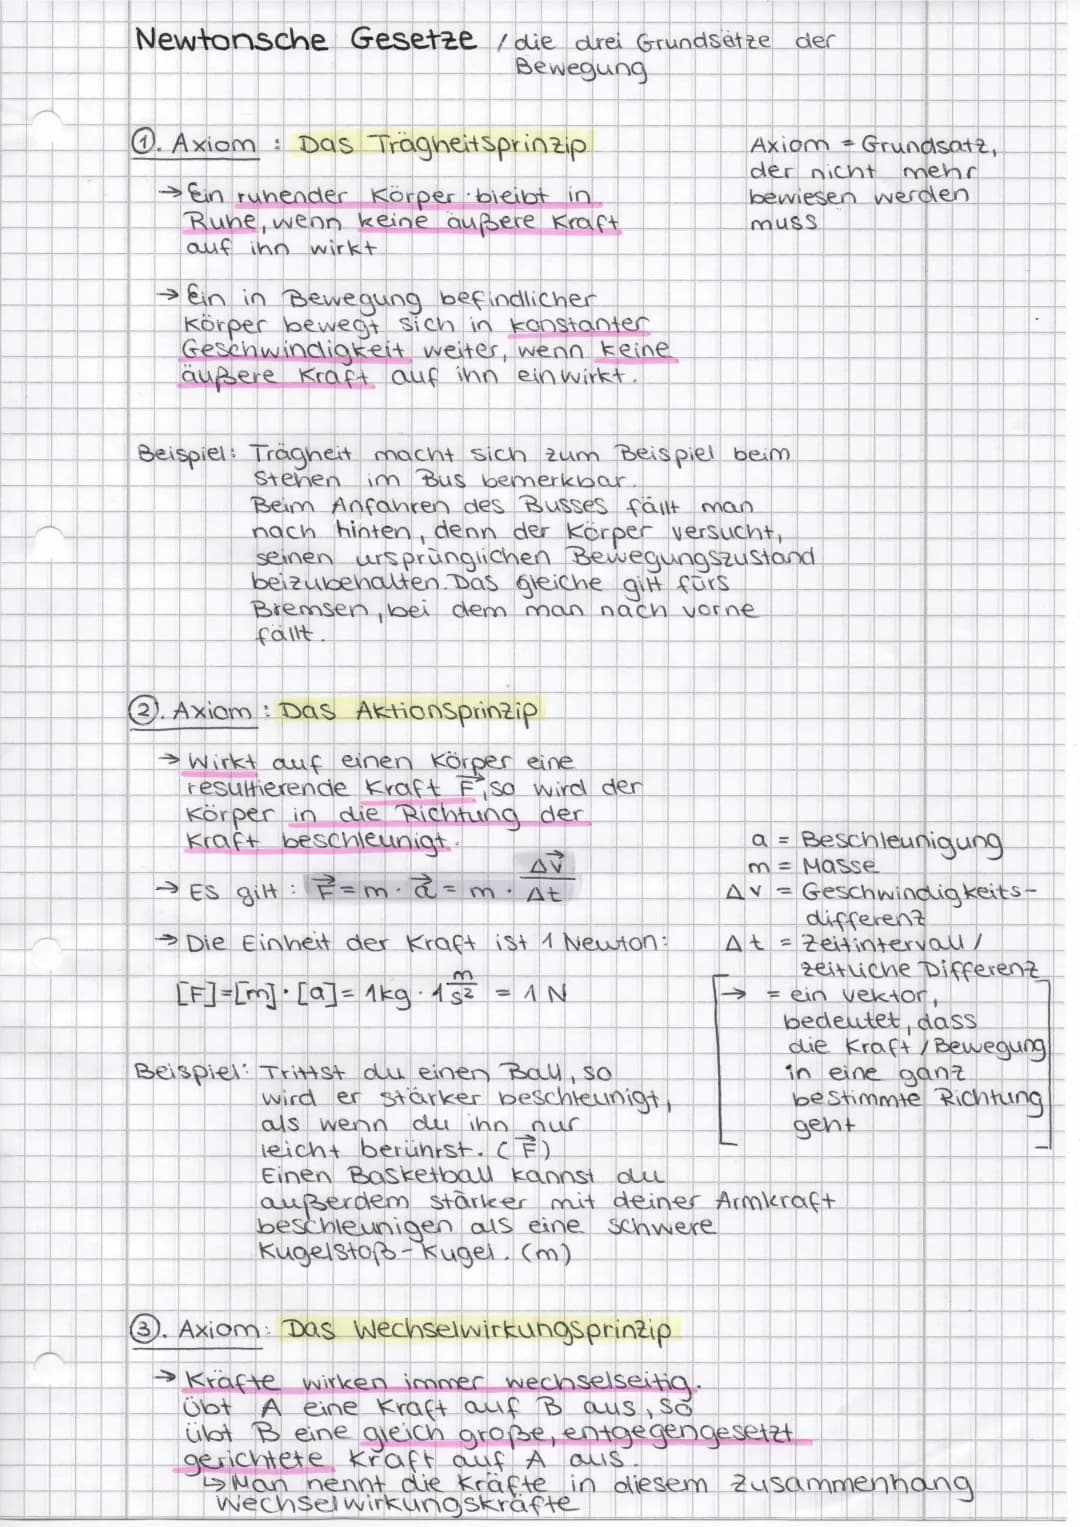 Newtonsche Gesetze / die drei Grundsätze der
Bewegung
①. Axiom : Das Trägheitsprinzip
Axiom = Grundsatz,
der nicht mehr
bewiesen werden
muss
→ Ein ruhender Körper bleibt in
Ruhe, wenn keine äußere Kraft
auf ihn wirkt
→ Ein in Bewegung befindlicher
Körper bewegt sich in konstanter
Geschwindigkeit weiter, wenn keine
äußere Kraft auf ihn einwirkt.
Beispiel: Trägheit macht sich zum Beispiel beim
Stehen im Bus bemerkbar.
Beim Anfahren des Busses fällt man
nach hinten, denn der Körper versucht,
seinen ursprünglichen Bewegungszustand
beizubehalten. Das gleiche gilt fürs
Bremsen, bei dem man nach vorne
fällt.
②. Axiom : Das Aktionsprinzip
→ Wirkt auf einen Körper eine
resultierende Kraft F⃗, so wird der
Körper in die Richtung der
Kraft beschleunigt.
→ Es gilt : F⃗ = m · a⃗ = m · Δv⃗/Δt
→ Die Einheit der Kraft ist 1 Newton:
[F]=[m]·[a]= 1kg · 1 m/s² = 1 N
a = Beschleunigung
m = Masse
Δv = Geschwindigkeits-
differenz
Δt = Zeitintervall /
zeitliche Differenz
→ = ein Vektor,
bedeutet, dass
die Kraft / Bewegung
in eine ganz
bestimmte Richtung
geht
Beispiel: Trittst du einen Ball, so
wird er stärker beschleunigt,
als wenn du ihn nur
leicht berührst. (F⃗)
Einen Basketball kannst du
außerdem stärker mit deiner Armkraft
beschleunigen als eine schwere
Kugelstoß-Kugel. (m)
③. Axiom: Das Wechselwirkungsprinzip
→ Kräfte wirken immer wechselseitig.
Übt A eine Kraft auf B aus, so
übt B eine gleich große, entgegengesetzt
gerichtete Kraft auf A aus.
↳ Man nennt die Kräfte in diesem Zusammenhang
Wechselwirkungskräfte